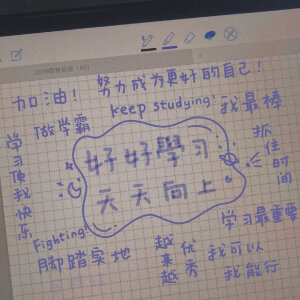 努力成为更好的自己！
加油！
keep studying!
我最棒
做学霸
学习使我快乐
好好學习
天天向上
抓住时间
学习最重要
Fighting!
脚踏实地
越来越优秀
我可以
我能行